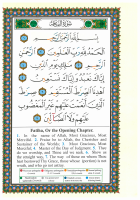 سورة الفاتحة
بسم الله الرحمن الرحيم
الحمد لله رب العالمين
الرحمن الرحيم
مالك يوم الدين
إياك نعبد وإياك نستعين
اهدنا الصراط المستقيم
صراط الذين أنعمت عليهم غير المغضوب
عليهم ولا الضالين
Fatiha, Or the Opening Chapter.
1. In the name of Allah, Most Gracious, Most
Merciful. 2. Praise be to Allah, the Cherisher and
Sustainer of the Worlds; 3. Most Gracious, Most
Merciful; 4. Master of the Day of Judgment. 5. Thee
do we worship, and Thine aid we seek. 6. Show us
the straight way, 7. The way of those on whom Thou
hast bestowed Thy Grace, those whose (portion) is not
wrath, and who go not astray.